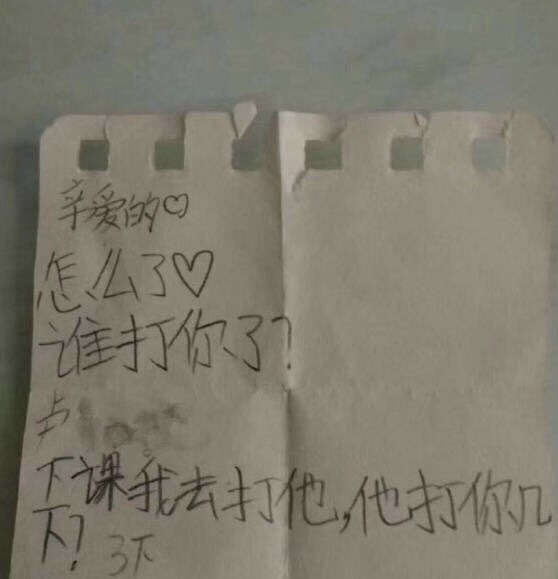 亲爱的♡
怎么了♡
谁打你了?
卢
下课我去打他,他打你几
下? 3下